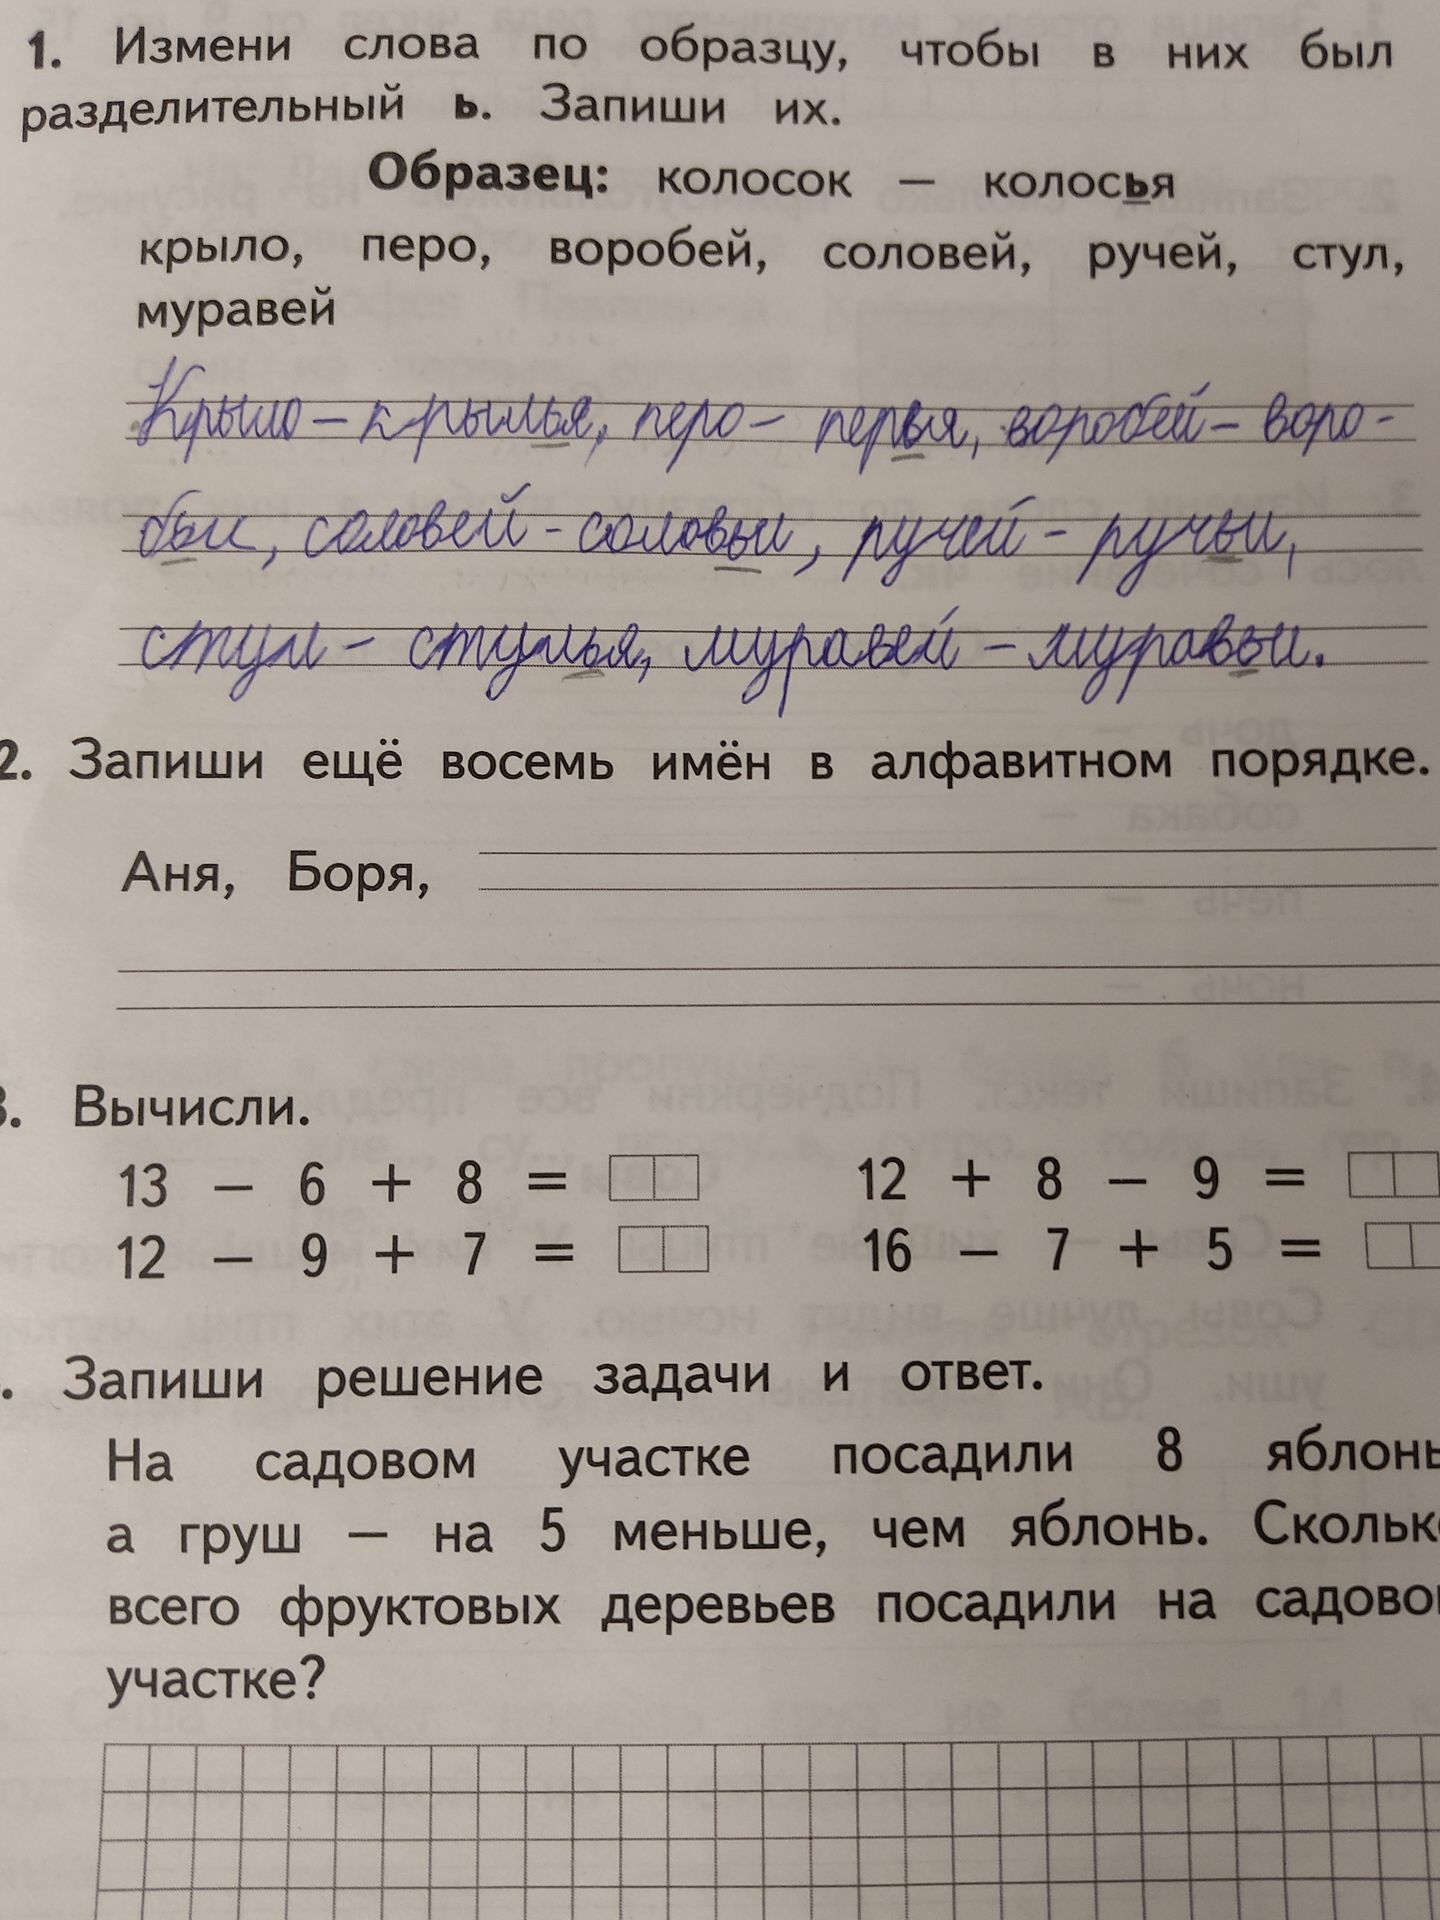 1. Измени слова по образцу, чтобы в них был
разделительный ь. Запиши их.
Образец: колосок — колосья
крыло, перо, воробей, соловей, ручей, стул,
муравей
Крыло – крылья, перо – перья, воробей – воро-
бьи, соловей - соловьи, ручей - ручьи,
стул - стулья, муравей – муравьи.
2. Запиши ещё восемь имён в алфавитном порядке.
Аня, Боря,
3. Вычисли.
13 – 6 + 8 = 12 + 8 – 9 =
12 – 9 + 7 = 16 – 7 + 5 =
. Запиши решение задачи и ответ.
На садовом участке посадили 8 яблонь
а груш — на 5 меньше, чем яблонь. Сколько
всего фруктовых деревьев посадили на садовом
участке?